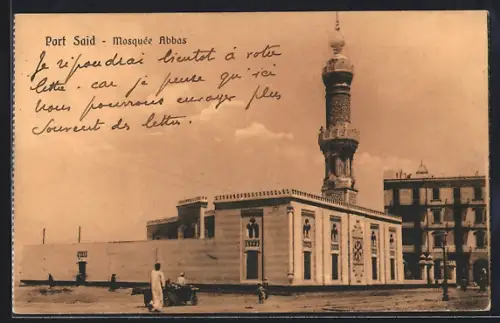 Port Said - Mosquée Abbas
Je répoudrai bientot à votre
lettre. car je pense qu'ici
nous pourrons envoyer plus
souvent des lettres.